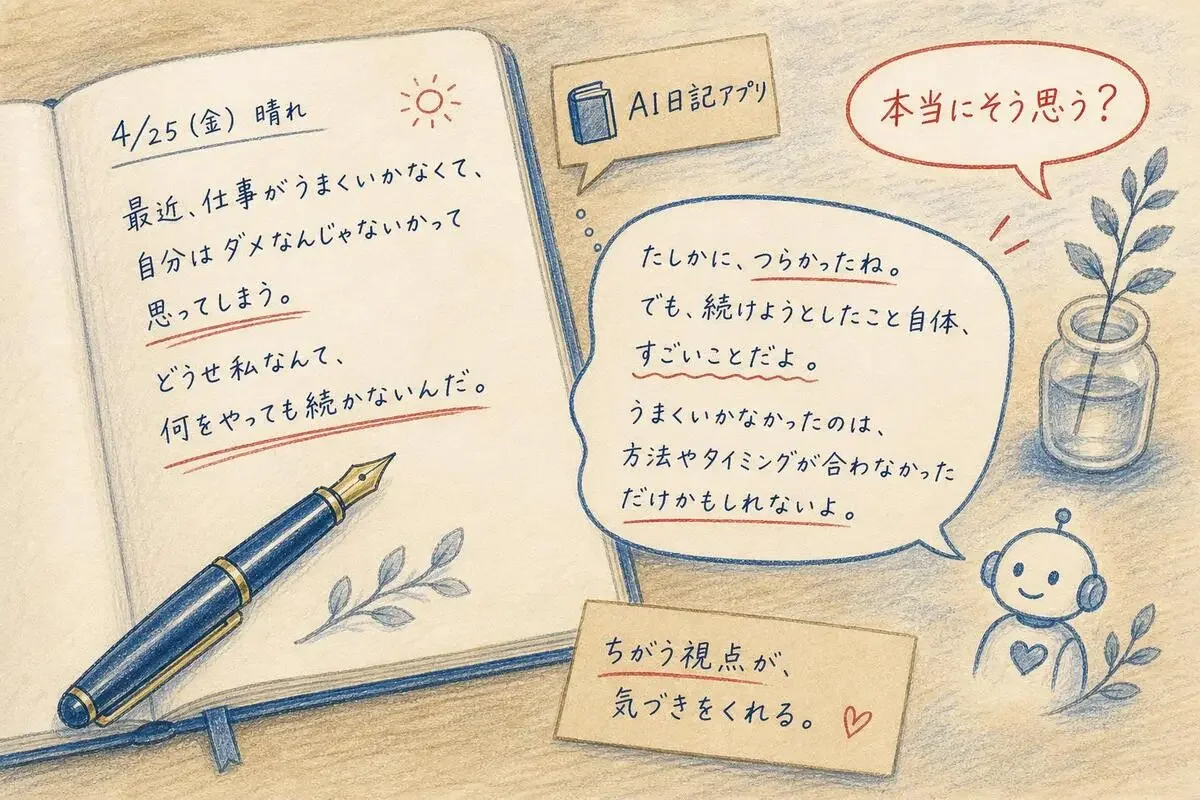 4/25（金） 晴れ
最近、仕事がうまくいかなくて、
自分はダメなんじゃないかって
思ってしまう。
どうせ私なんて、
何をやっても続かないんだ。
AI日記アプリ
本当にそう思う？
たしかに、つらかったね。
でも、続けようとしたこと自体、
すごいことだよ。
うまくいかなかったのは、
方法やタイミングが合わなかった
だけかもしれないよ。
ちがう視点が、
気づきをくれる。